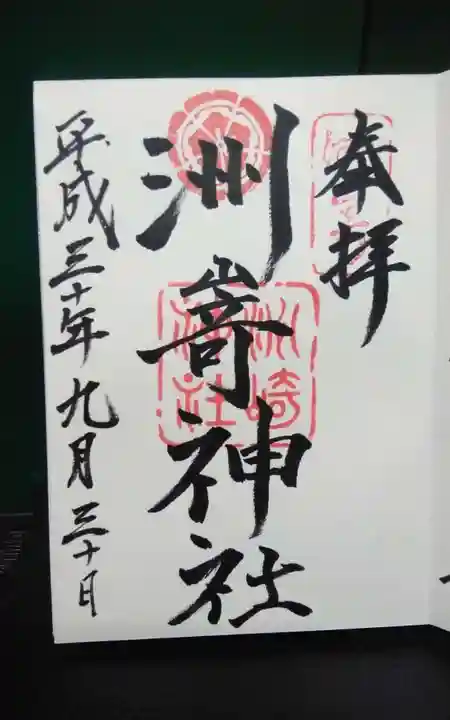 奉拝
洲嵜神社
平成三十年九月三十日
洲崎
神社